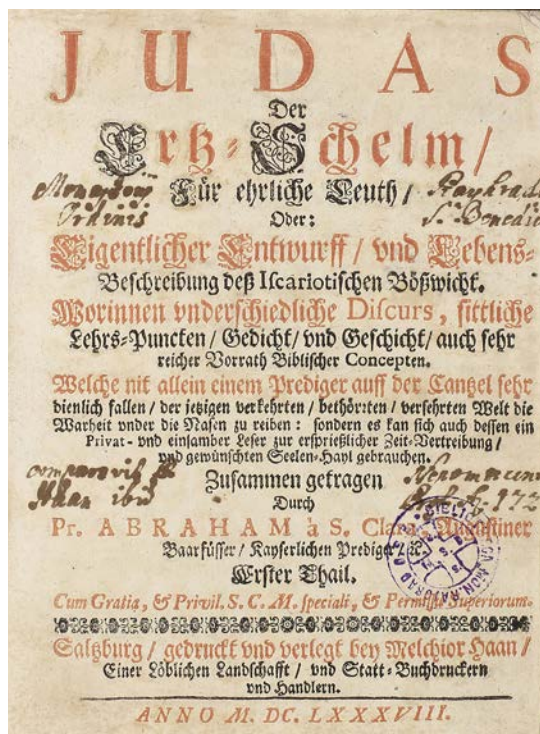 JUDAS
Der
Ertz-Schelm/
Für ehrliche Leuth/
Oder:
Eigentlicher Entwurff/ vnd Lebens-
Beschreibung deß Iscariotischen Bößwicht.
Worinnen vnderschiedliche Discurs, sittliche
Lehrs-Puncten/ Gedicht/ vnd Geschicht/ auch sehr
reicher Vorrath Biblischer Concepten.
Welche nit allein einem Prediger auff der Cantzel sehr
dienlich fallen/ der jetzigen verkehrten/ bethörten/ versehrten Welt die
Warheit vnder die Nasen zu reiben: sondern es kan sich auch dessen ein
Privat- vnd einsamber Leser zur ersprießlicher Zeit-Vertreibung/
vnd gewünschten Seelen-Hayl gebrauchen.
Zusammen getragen
Durch
Pr. ABRAHAM à S. Clara, Augustiner
Baarfüsser/ Kayserlichen Prediger/ &c.
Erster Thail.
Cum Gratia, & Privil. S. C. M. speciali, & Permissu Superiorum.
Saltzburg/ gedruckt vnd verlegt bey Melchior Haan/
Einer Löblichen Landschafft/ vnd Statt-Buchdruckern
vnd Handlern.
ANNO M. DC. LXXXVIII.